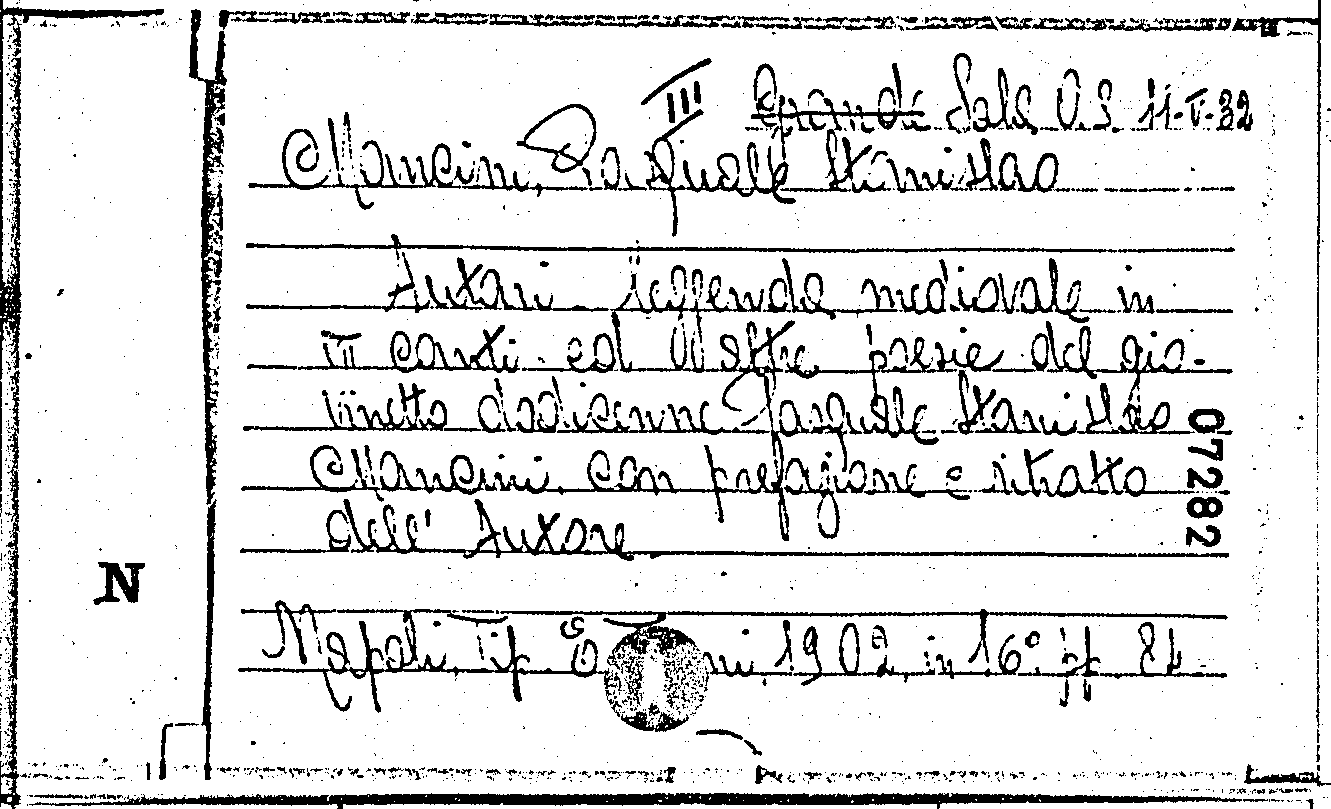 III Grande Sala V. S. 11-V-32
Mancini, Pasquale Stanislao
Autari. leggenda medioevale in
III canti. ed altre poesie del gio-
vinetto dodicenne Pasquale Stanislao
Mancini. con prefazione e ritratto
dell' Autore.
07282
N
Napoli, Tip. 1902, in 16° pp. 84.